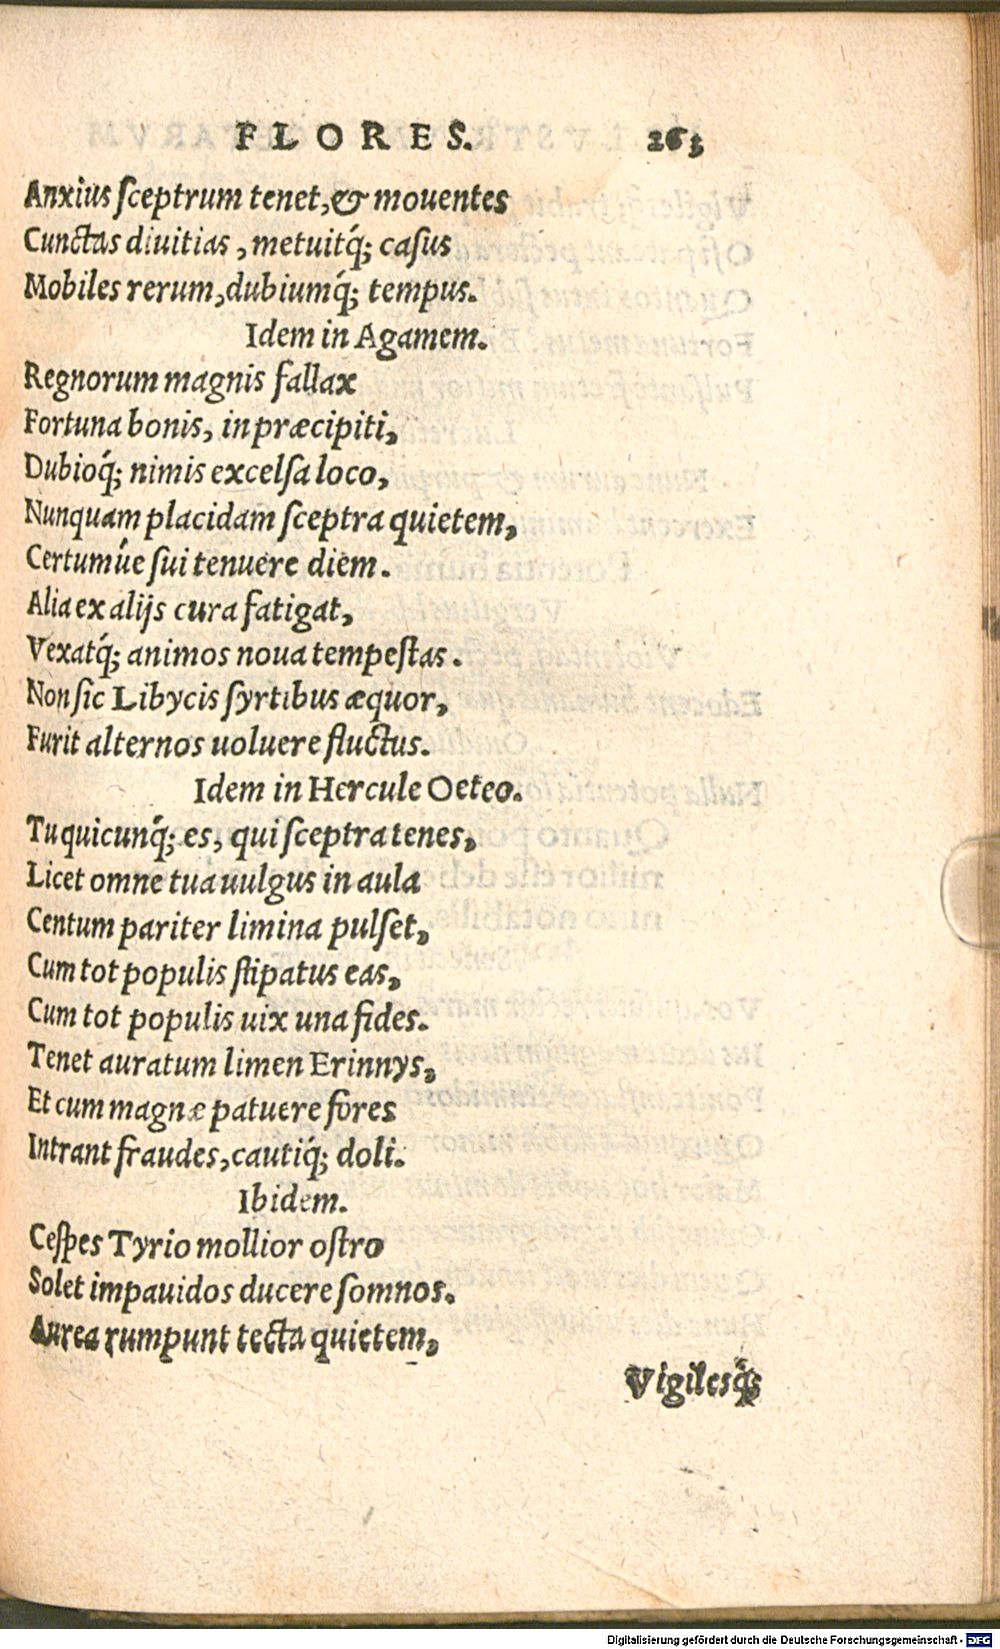 FLORES. 263
Anxius ſceptrum tenet, & mouentes
Cunctas diuitias, metuitq́; caſus
Mobiles rerum, dubiumq́; tempus.
Idem in Agamem.
Regnorum magnis fallax
Fortuna bonis, in præcipiti,
Dubioq́; nimis excelſa loco,
Nunquam placidam ſceptra quietem,
Certumúe ſui tenuere diem.
Alia ex alijs cura fatigat,
Vexatq́; animos noua tempeſtas.
Non ſic Libycis ſyrtibus æquor,
Furit alternos uoluere fluctus.
Idem in Hercule Oeteo.
Tu quicunq́; es, qui ſceptra tenes,
Licet omne tua uulgus in aula
Centum pariter limina pulſet,
Cum tot populis ſtipatus eas,
Cum tot populis uix una fides.
Tenet auratum limen Erinnys,
Et cum magnæ patuere fores
Intrant fraudes, cautiq́; doli.
Ibidem.
Ceſpes Tyrio mollior oſtro
Solet impauidos ducere ſomnos.
Aurea rumpunt tecta quietem,
Vigilesq́;
Digitalisierung gefördert durch die Deutsche Forschungsgemeinschaft - DFG